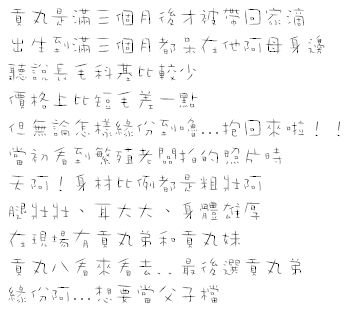 貢丸是滿三個月後才被帶回家滴
出生到滿三個月都呆在他阿母身邊
聽說長毛科基比較少
價格上比短毛差一點
但無論怎樣緣份到嚕...抱回來啦！！
當初看到繁殖老闆拍的照片時
天阿！身材比例都是粗壯阿
腿壯壯、耳大大、身體雄厚
在現場有貢丸弟和貢丸妹
貢丸八看來看去..最後選貢丸弟
緣份阿...想要當父子檔